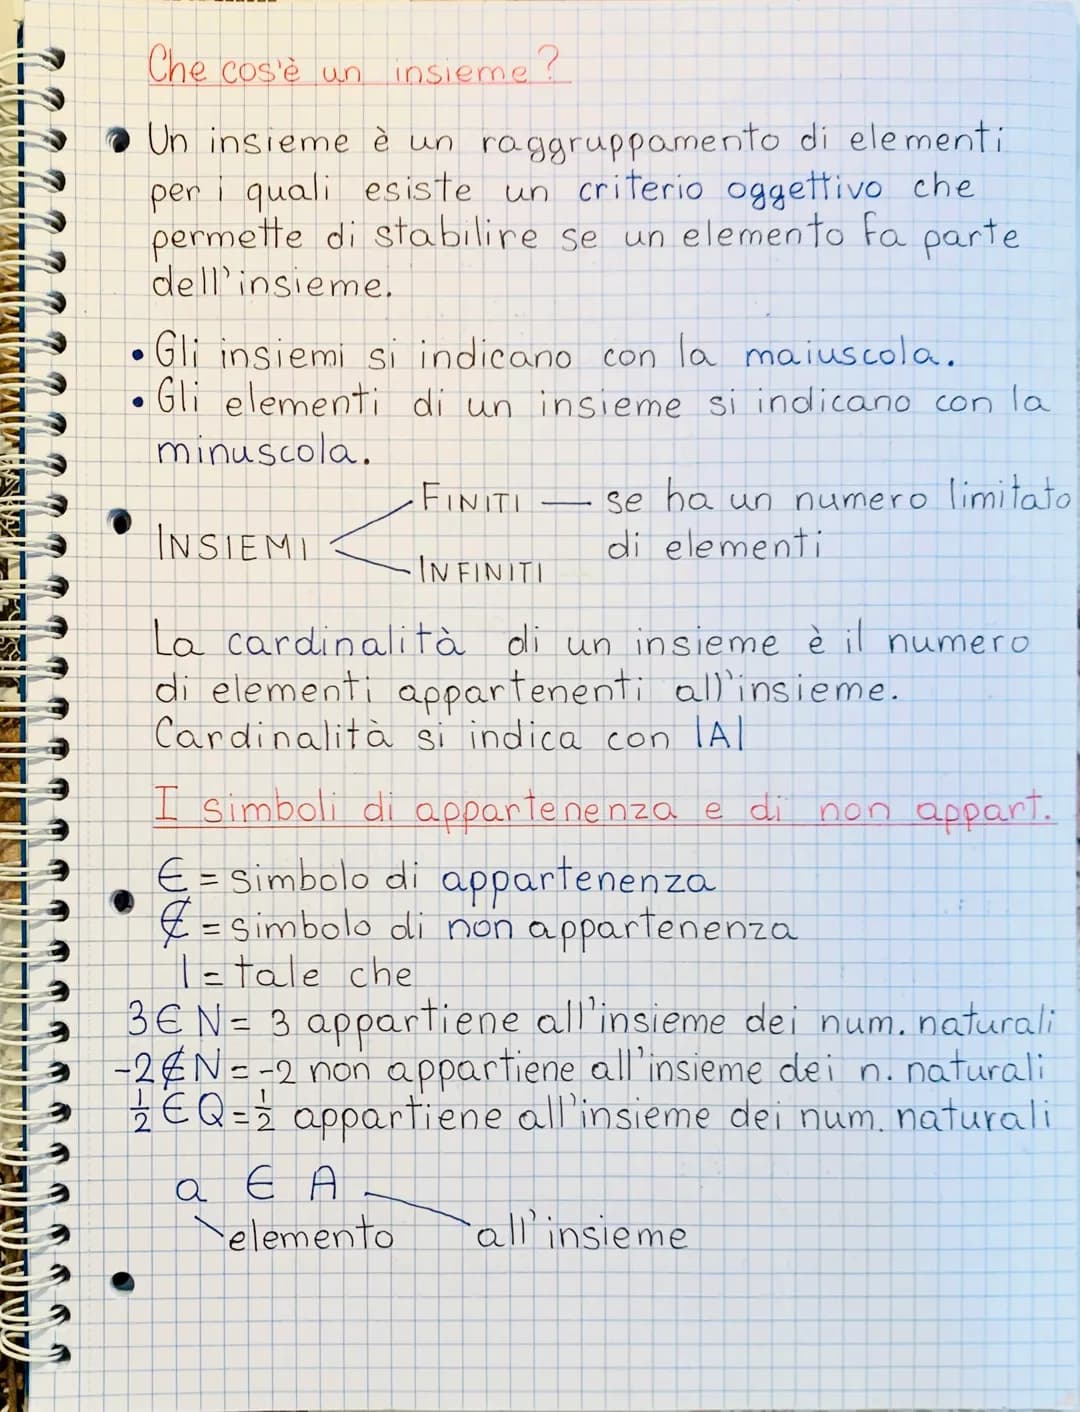 Che cos'è un insieme?
Un insieme è un raggruppamento di elementi
per i quali esiste un criterio oggettivo che
permette di stabilire se un elemento fa parte
dell'insieme.
• Gli insiemi si indicano con la maiuscola.
• Gli elementi di un insieme si indicano con la
minuscola.
FINITI — se ha un numero limitato
INSIEMI di elementi
INFINITI
La cardinalità di un insieme è il numero
di elementi appartenenti all'insieme.
Cardinalità si indica con |A|
I simboli di appartenenza e di non appart.
∈ = simbolo di appartenenza
∉ = simbolo di non appartenenza
| = tale che
3 ∈ N = 3 appartiene all'insieme dei num. naturali
-2 ∉ N = -2 non appartiene all'insieme dei n. naturali
1/2 ∈ Q = 1/2 appartiene all'insieme dei num. naturali
a ∈ A
elemento all'insieme